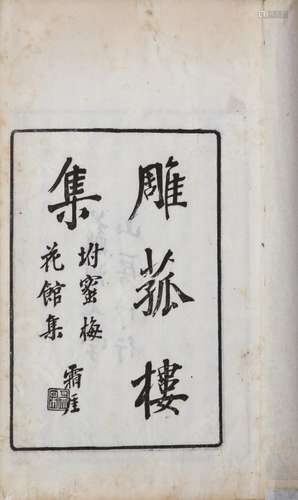 雕菰樓
集
坿蜜梅
花館集
霜厓